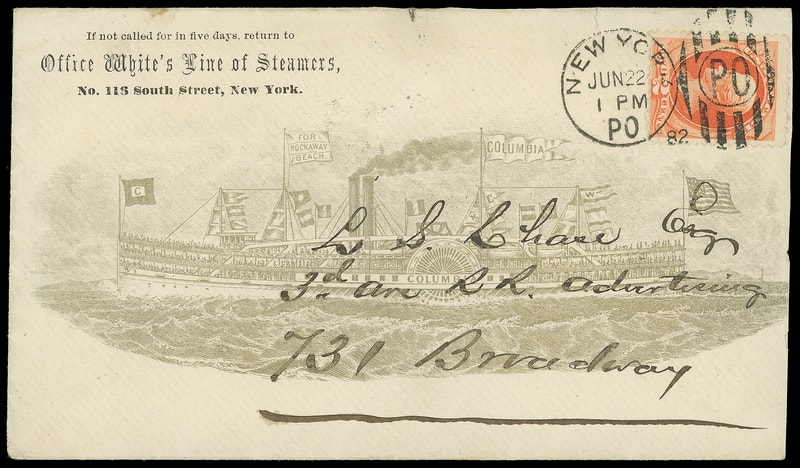 If not called for in five days, return to
Office White's Line of Steamers,
No. 113 South Street, New York.
NEW YORK
JUN 22
1 PM
PO
82
PO
FOR
ROCKAWAY
BEACH.
COLUMBIA
C
C
W
COLUMBIA
L. S. Chase Esq
3d ave R.R. advertising
731 Broadway